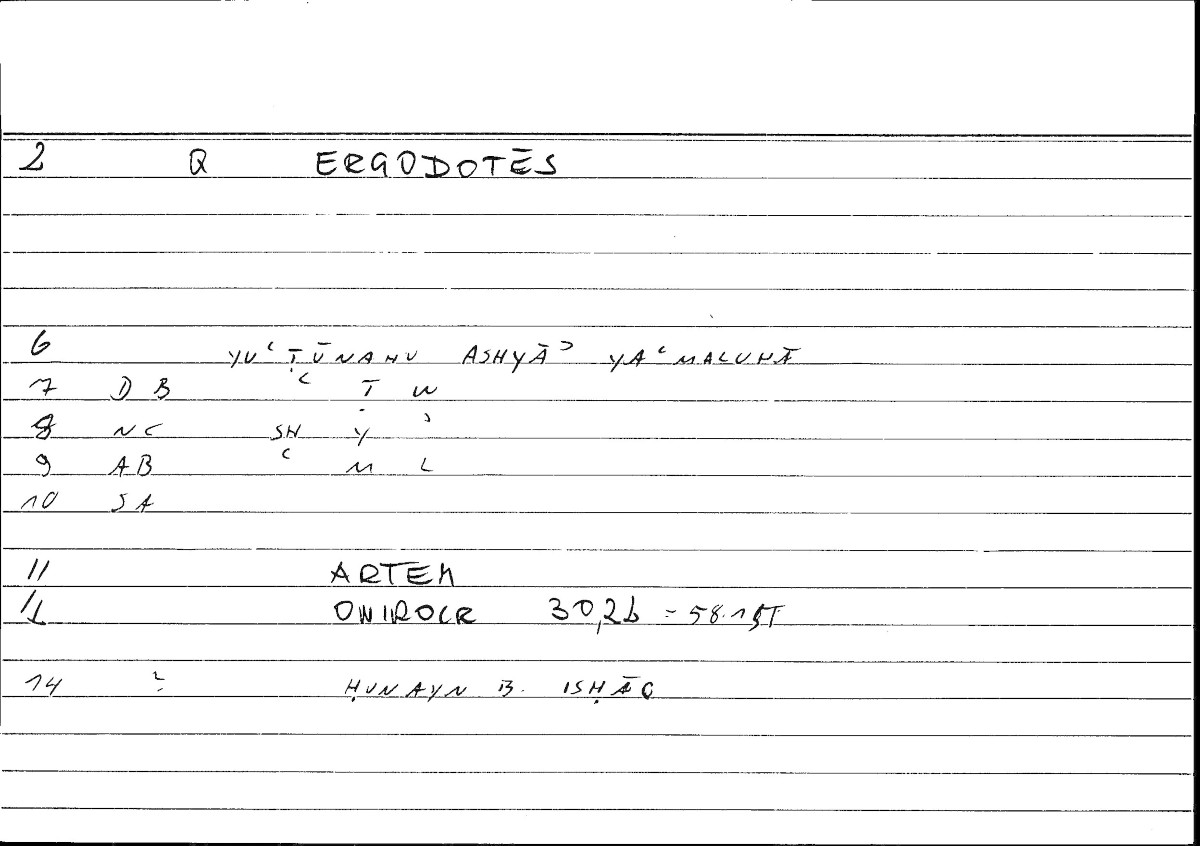 2 Q ERGODOTĒS
6 YUʿṬŪNAHU ASHYĀʾ YAʿMALUHĀ
7 DB ʿ Ṭ W
8 NC SH Y ʾ
9 AB ʿ M L
10 SA
11 ARTEM
12 ONIROCR 30,26 = 58.15T
14 ? ḤUNAYN B. ISḤĀQ